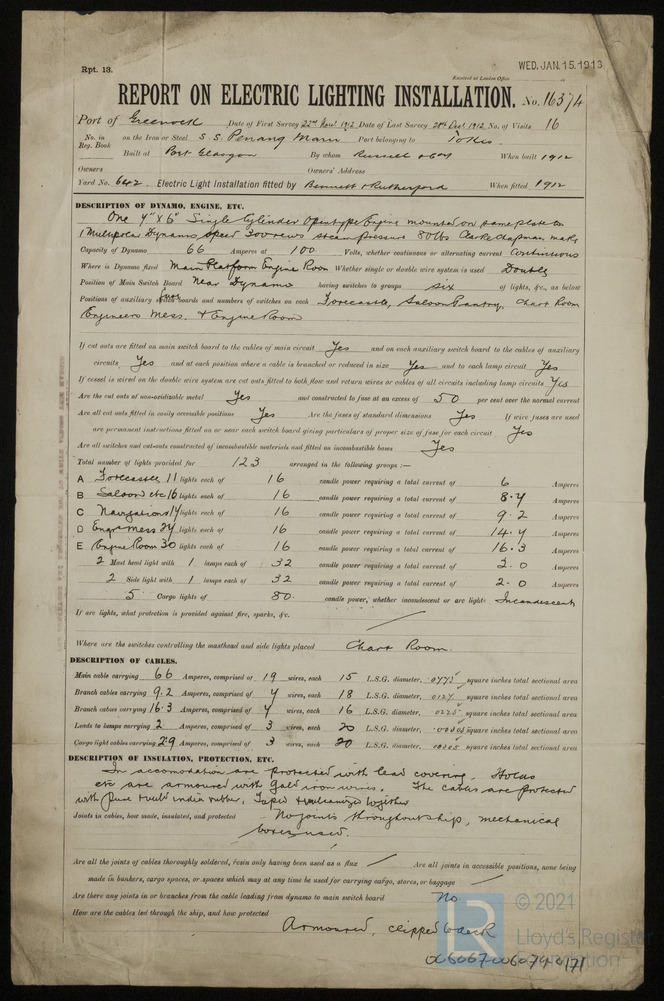 Rpt. 13.
WED. JAN. 15. 1913
Received at London Office
REPORT ON ELECTRIC LIGHTING INSTALLATION. No. 16374
Port of Greenock Date of First Survey 22nd Nov 1912 Date of Last Survey 28th Dec 1912 No. of Visits 16
No. in on the Iron or Steel S.S. Penang Maru Port belonging to Tokio
Reg. Book
Built at Port Glasgow By whom Russell & Coy When built 1912
Owners Owners' Address
Yard No. 642 Electric Light Installation fitted by Bennett & Rutherford When fitted 1912
DESCRIPTION OF DYNAMO, ENGINE, ETC.
One 7" x 6" Single Cylinder Open type Engine mounted on same plate as
1 Multipolar Dynamo speed 300 revs steam pressure 80 lbs Clarke Chapman make
Capacity of Dynamo 66 Amperes at 100 Volts, whether continuous or alternating current Continuous
Where is Dynamo fixed Main Platform Engine Room Whether single or double wire system is used Double
Position of Main Switch Board Near Dynamo having switches to groups six of lights, &c., as below
Positions of auxiliary switch fuse boards and numbers of switches on each Forecastle, Saloon Pantry, Chart Room
Engineers Mess, & Engine Room
If cut outs are fitted on main switch board to the cables of main circuit Yes and on each auxiliary switch board to the cables of auxiliary
circuits Yes and at each position where a cable is branched or reduced in size Yes and to each lamp circuit Yes
If vessel is wired on the double wire system are cut outs fitted to both flow and return wires or cables of all circuits including lamp circuits Yes
Are the cut outs of non-oxidizable metal Yes and constructed to fuse at an excess of 50 per cent over the normal current
Are all cut outs fitted in easily accessible positions Yes Are the fuses of standard dimensions Yes If wire fuses are used
are permanent instructions fitted on or near each switch board giving particulars of proper size of fuse for each circuit Yes
Are all switches and cut-outs constructed of incombustible materials and fitted on incombustible bases Yes
Total number of lights provided for 123 arranged in the following groups :—
A Forecastle 11 lights each of 16 candle power requiring a total current of 6 Amperes
B Saloon etc 16 lights each of 16 candle power requiring a total current of 8.7 Amperes
C Navigations 17 lights each of 16 candle power requiring a total current of 9.2 Amperes
D Engrs Mess 27 lights each of 16 candle power requiring a total current of 14.7 Amperes
E Engine Room 30 lights each of 16 candle power requiring a total current of 16.3 Amperes
2 Mast head light with 1 lamps each of 32 candle power requiring a total current of 2.0 Amperes
2 Side light with 1 lamps each of 32 candle power requiring a total current of 2.0 Amperes
5 Cargo lights of 80 candle power, whether incandescent or arc lights Incandescent
If arc lights, what protection is provided against fire, sparks, &c.
Where are the switches controlling the masthead and side lights placed Chart Room.
DESCRIPTION OF CABLES.
Main cable carrying 66 Amperes, comprised of 19 wires, each 15 L.S.G. diameter, square inches total sectional area
Branch cables carrying 9.2 Amperes, comprised of 7 wires, each 18 L.S.G. diameter, square inches total sectional area
Branch cables carrying 16.3 Amperes, comprised of 7 wires, each 16 L.S.G. diameter, square inches total sectional area
Leads to lamps carrying 2 Amperes, comprised of 3 wires, each 20 L.S.G. diameter, square inches total sectional area
Cargo light cables carrying 2.9 Amperes, comprised of 3 wires, each 20 L.S.G. diameter, square inches total sectional area
DESCRIPTION OF INSULATION, PROTECTION, ETC.
In accomodation are protected with lead covering. Holds
etc are armoured with Gald iron wires. The cables are protected
with pure & vulc india rubber, Taped & vulcanized together
Joints in cables, how made, insulated, and protected No joints throughout ship, mechanical
boxes used.
Are all the joints of cables thoroughly soldered, resin only having been used as a flux Are all joints in accessible positions, none being
made in bunkers, cargo spaces, or spaces which may at any time be used for carrying cargo, stores, or baggage
Are there any joints in or branches from the cable leading from dynamo to main switch board No
How are the cables led through the ship, and how protected
Armoured, clipped to deck
© 2021
Lloyd's Register
Foundation